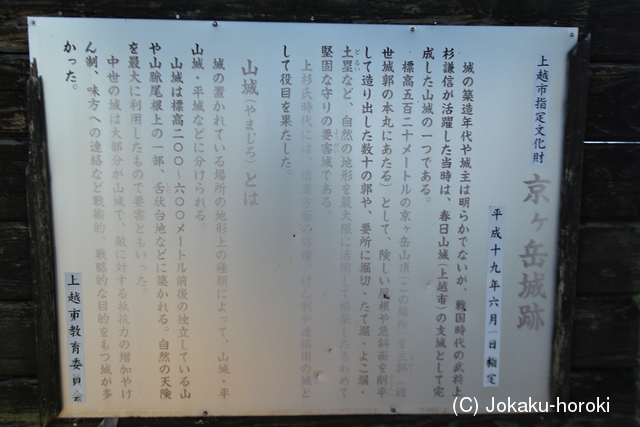 上越市指定文化財
京ヶ岳城跡
平成十九年六月一日指定
城の築造年代や城主は明らかでないが、戦国時代の武将上
杉謙信が活躍した当時は、春日山城(上越市)の支城として完
成した山城の一つである。
標高五百二十メートルの京ヶ岳山頂(この場所)を主郭(近
世城郭の本丸にあたる)として、険しい尾根や急斜面を削平
して造り出した数十の郭や、要所に堀切・たて堀・よこ堀・
土塁など、自然の地形を最大限に活用して構築したきわめて
堅固な守りの要害城である。
上杉氏時代には、信濃方面の けん制や連絡用の城と
して役目を果たした。
山城(やまじろ)とは
城の置かれている場所の地形上の種類によって、山城・平
山城・平城などに分けられる。
山城は標高二〇〇〜六〇〇メートル前後の独立している山
や山脈尾根上の一部、舌状台地などに築かれる。自然の天険
を最大に利用したもので要害ともいった。
中世の城は大部分が山城で、敵に対する抵抗力の増加やけ
ん制、味方への連絡など戦術的、戦略的な目的をもつ城が多
かった。
上越市教育委員会
(C) Jokaku-horoki